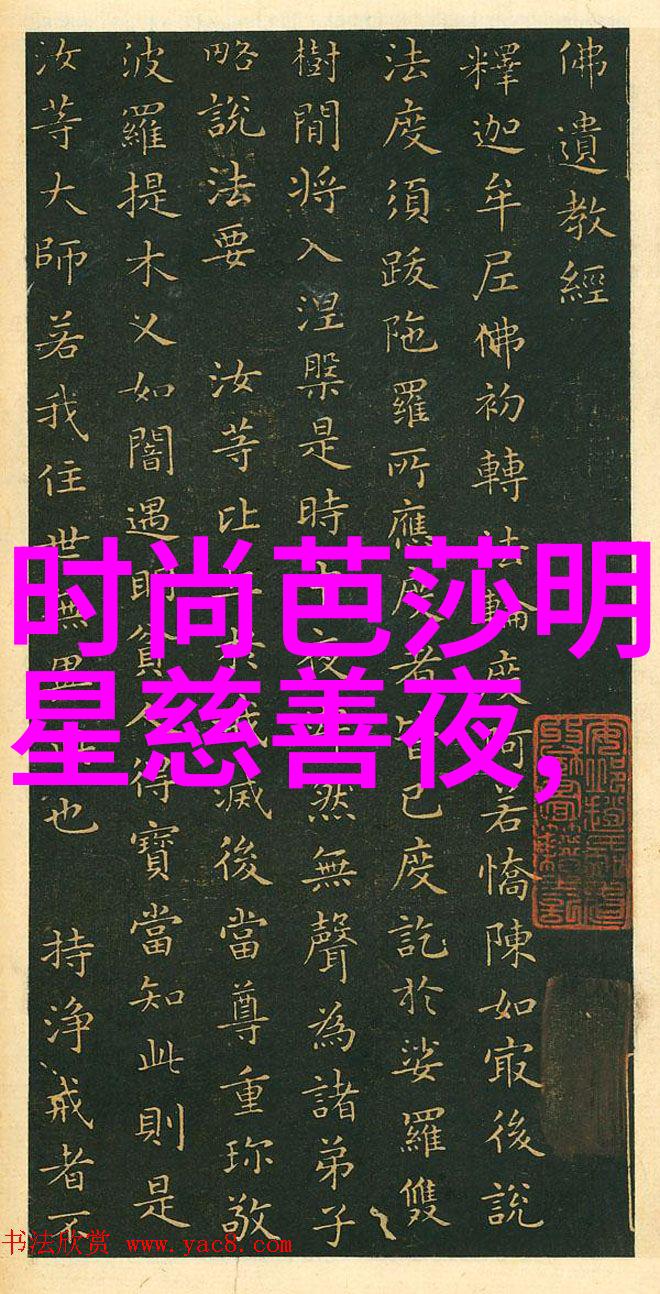 佛遺教經
釋迦牟尼佛初轉法輪度阿若憍陳如最後說
法度須跋陁羅所應度者皆已度訖於娑羅雙
樹間将入涅槃是時中夜寂然無聲為諸弟子
略說法要 汝等比丘於我滅後當尊重珎敬
波羅提木叉如闇遇明貧人得寶當知此則是
汝等大師若我住世無異此也 持淨戒者不
时尚芭莎明
星慈善夜,
书法欣赏 www.yac8.com